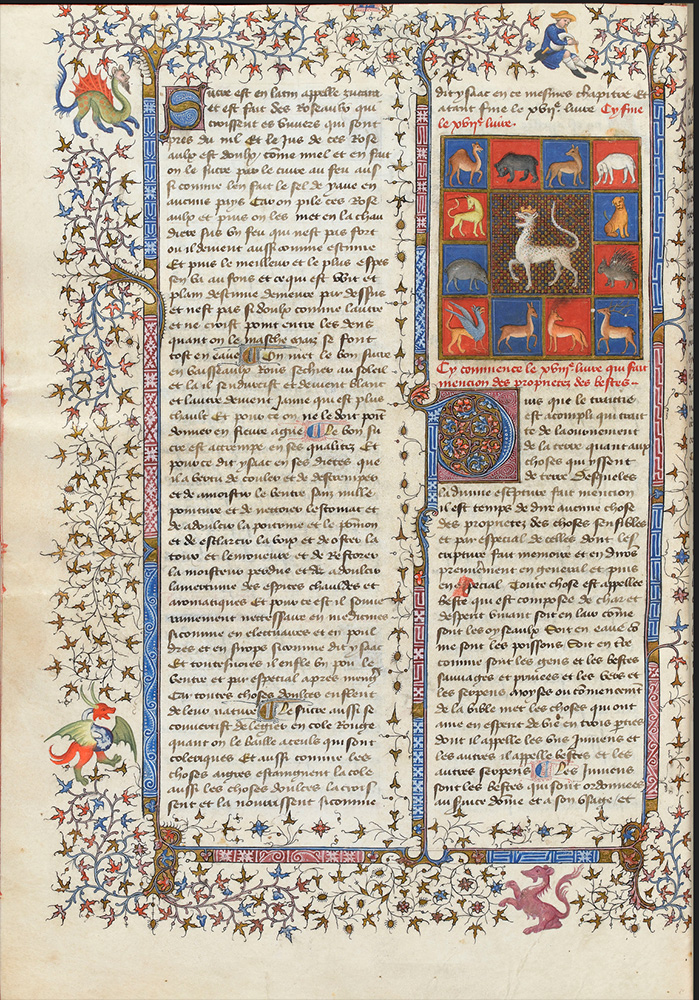 Sucre est en latin appelle zucara
et est fait des Roseaulx qui
croissent es viviers qui sont
pres du nil Et le Jus de ces Rose
aulx est doulx come miel et en fait
on le sucre par le cuire au feu aus
si comme lon fait le sel de yaue en
aucuns pays Car on pile ces Rose
aulx et puis on les met en la chau
diere sus un feu qui nest pas fort
ou il devient aussi comme escume
Et puis le meilleur et le plus espes
sen va au fons et ce qui est vuit et
plain descume demeure par dessus
et nest pas si doulx comme lautre
et ne croist point entre les dens
quant on le masche mais se font
tost en eaue On met le bon sucre
en vaisseaulx Rons secher au soleil
et la il sendurcist et devient blanc
et lautre devient jaune qui est plus
chault Et pource on ne le doit point
donner en fievre ague Le bon su
cre est attrempe en ses qualitez Et
pource dit ysaac en ses dietes que
il a vertu de couler et de destremper
et de amoistir le ventre sans nulle
pointure et de nettoier lestomac et
de adoulcir la poitrine et le poumon
et de esclarcir la voix et de oster la
toux et lenroueure et de Restorer
la moisteur perdue et de adoulcir
lamertume des espices chauldes et
aromatiques Et pource est il souve
rainement necessaire en medicines
si comme en electuaires et en poul
dres et en sirops si comme dit ysaac
Et toutesvoies il enfle un pou le
ventre et par especial apres menger
Car toutes choses doulces enflent
de leur nature Le sucre aussi se
convertist de legier en cole Rouge
quant on le baille a ceulx qui sont
coleriques Et aussi comme les
choses aigres estaingnent la cole
aussi les choses doulces la crois
sent et la nourrissent si comme
dit ysaac en ce mesmes chapitre Et
atant fine le xvii livre Cy fine
le xvii livre
Cy commence le xviii livre qui fait
mention des proprietez des bestes
Puis que le traittie
est acompli qui trait
te de laournement
de la terre quant aux
choses qui yssent
de terre Desqueles
la divine escripture fait mention
il est temps de dire aucune chose
des proprietez des choses sensibles
et par especial de celles dont les
cripture fait memoire et en dirons
premierement en general et puis
en especial Toute chose est appellee
beste qui est composee de char et
desperit vivant soit en lair come
sont les oyseaulx Soit en eaue co
me sont les poissons Soit en tre
comme sont les gens et les bestes
sauvages et privees et les vers et
les serpens moyses ou comencemt
de la bible met les choses qui ont
ame en esperit de vie en trois pties
dont il appelle les uns Jumens et
les autres il appelle bestes et les
autres serpens Les Jumens
sont les bestes qui sont ordonnees
au service dome et a son usage et